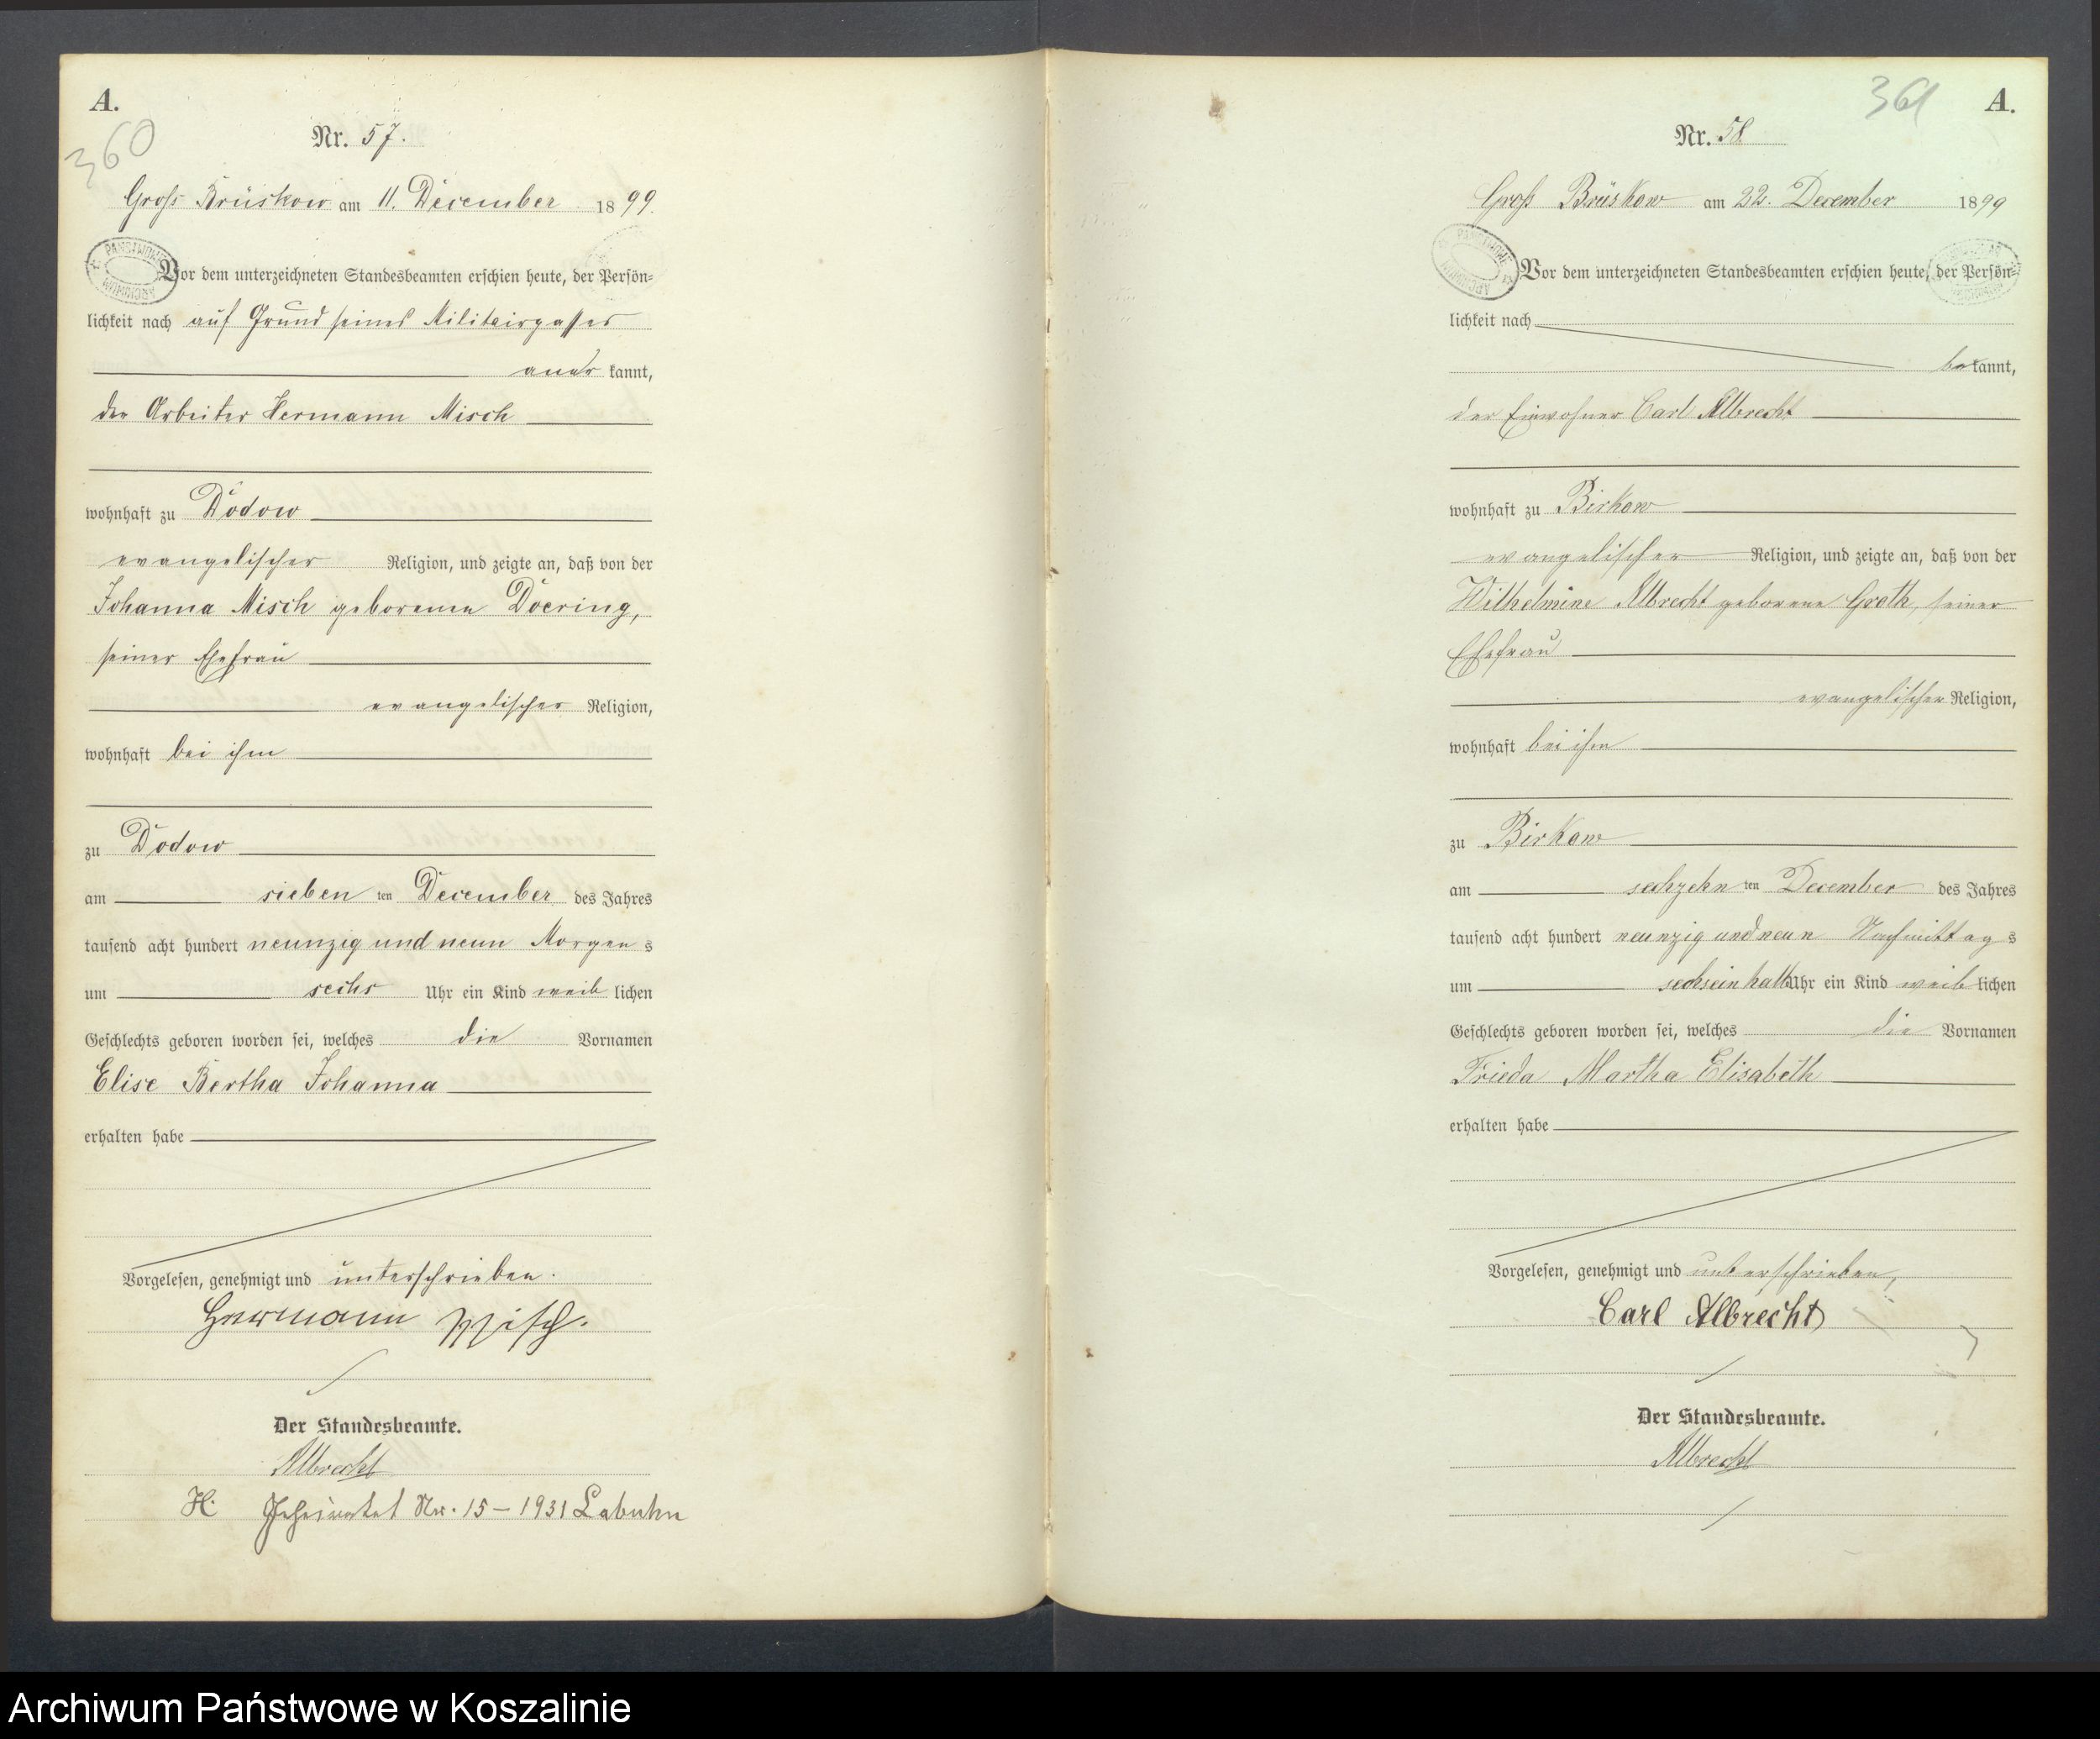 A.
360
Nr. 57.
Gross Brüskow am 11. December 1899.
PANSTWOWE ARCHIWUM
Vor dem unterzeichneten Standesbeamten erschien heute, der Persön=
lichkeit nach auf Grund seines Militairpasses
aner kannt,
der Arbeiter Hermann Misch
wohnhaft zu Dodow
evangelischer Religion, und zeigte an, daß von der
Johanna Misch geborenen Doering,
seiner Ehefrau
evangelischer Religion,
wohnhaft bei ihm
zu Dodow
am sieben ten December des Jahres
tausend acht hundert neunzig und neun Morgens
um sechs Uhr ein Kind weiblichen
Geschlechts geboren worden sei, welches die Vornamen
Elise Bertha Johanna
erhalten habe
Vorgelesen, genehmigt und unterschrieben.
Hermann Misch.
Der Standesbeamte.
Albrecht
H. Geheiratet Nr. 15 – 1931 Labuhn
361
A.
Nr. 58
Groß Brüskow am 22. December 1899
PANSTWOWE ARCHIWUM
Vor dem unterzeichneten Standesbeamten erschien heute, der Persön=
lichkeit nach
bekannt,
der Einwohner Carl Albrecht
wohnhaft zu Birkow
evangelischer Religion, und zeigte an, daß von der
Wilhelmine Albrecht geborene Groth, seiner
Ehefrau
evangelischer Religion,
wohnhaft bei ihm
zu Birkow
am sechzehn ten December des Jahres
tausend acht hundert neunzig und neun Nachmittags
um sechseinhalb Uhr ein Kind weiblichen
Geschlechts geboren worden sei, welches die Vornamen
Frieda Martha Elisabeth
erhalten habe
Vorgelesen, genehmigt und unterschrieben,
Carl Albrecht
Der Standesbeamte.
Albrecht
Archiwum Państwowe w Koszalinie